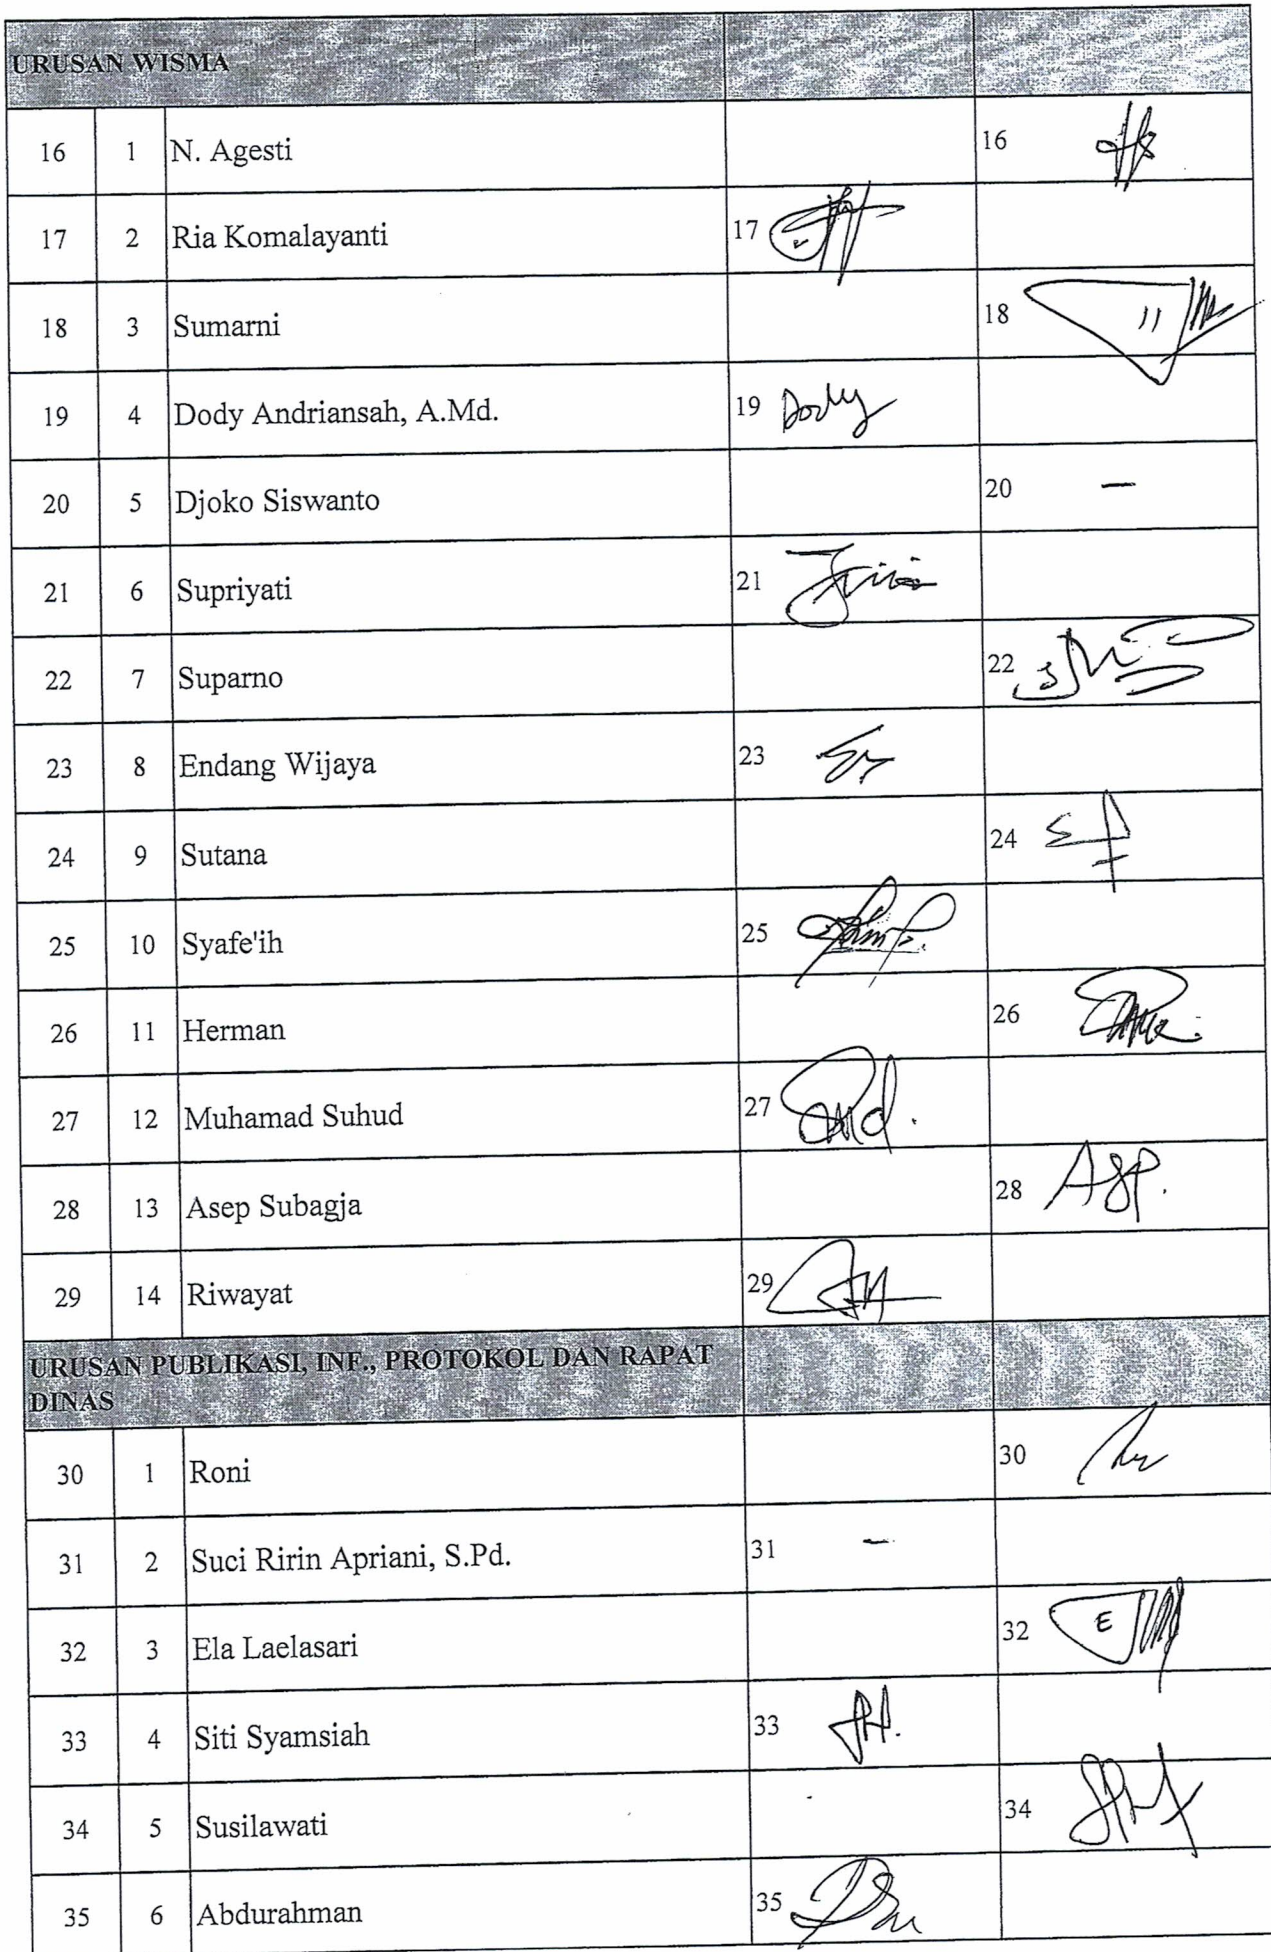 URUSAN WISMA
16 1 N. Agesti 16
17 2 Ria Komalayanti 17
18 3 Sumarni 18
19 4 Dody Andriansah, A.Md. 19 Dody
20 5 Djoko Siswanto 20 –
21 6 Supriyati 21
22 7 Suparno 22
23 8 Endang Wijaya 23
24 9 Sutana 24
25 10 Syafe'ih 25
26 11 Herman 26
27 12 Muhamad Suhud 27
28 13 Asep Subagja 28 Asp.
29 14 Riwayat 29
URUSAN PUBLIKASI, INF., PROTOKOL DAN RAPAT
DINAS
30 1 Roni 30
31 2 Suci Ririn Apriani, S.Pd. 31 -
32 3 Ela Laelasari 32 E
33 4 Siti Syamsiah 33
34 5 Susilawati 34
35 6 Abdurahman 35